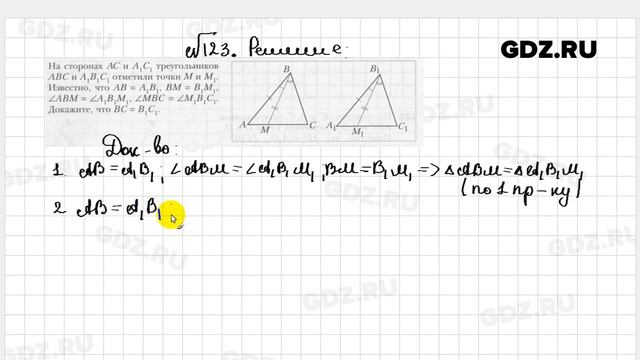 №123. Решение:
GDZ.RU
На сторонах AC и A₁C₁ треугольников
ABC и A₁B₁C₁ отметили точки M и M₁.
Известно, что AB = A₁B₁, BM = B₁M₁,
∠ABM = ∠A₁B₁M₁, ∠MBC = ∠M₁B₁C₁.
Докажите, что BC = B₁C₁.
B B₁
A M C A₁ M₁ C₁
Док-во:
1 AB = A₁B₁; ∠ABM = ∠A₁B₁M₁, BM = B₁M₁ => △ABM = △A₁B₁M₁
(по 1 пр-ку)
2 AB = A₁B₁
GDZ.RU
GDZ.RU
GDZ.RU
GDZ.RU
GDZ.RU
GDZ.RU
GDZ.RU